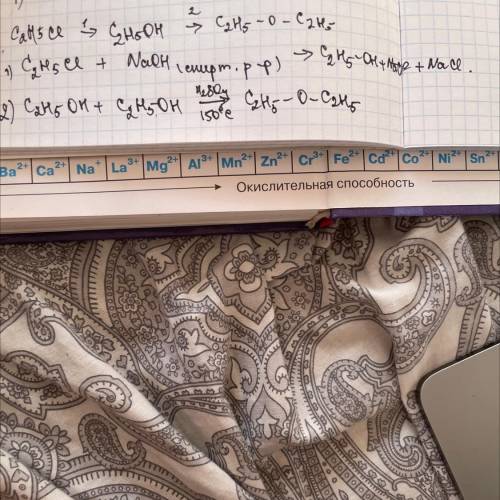 C₂H5Cl →¹ C₂H5OH →² C₂H5-O-C₂H5
1) C₂H5Cl + NaOH (спирт. р-р) → C₂H5-OH + + NaCl.
2) C₂H5OH + C₂H5OH H₂SO₄ → 150°C C₂H5-O-C₂H5
Ba²⁺ Ca²⁺ Na⁺ La³⁺ Mg²⁺ Al³⁺ Mn²⁺ Zn²⁺ Cr³⁺ Fe²⁺ Cd²⁺ Co²⁺ Ni²⁺ Sn²⁺
Окислительная способность